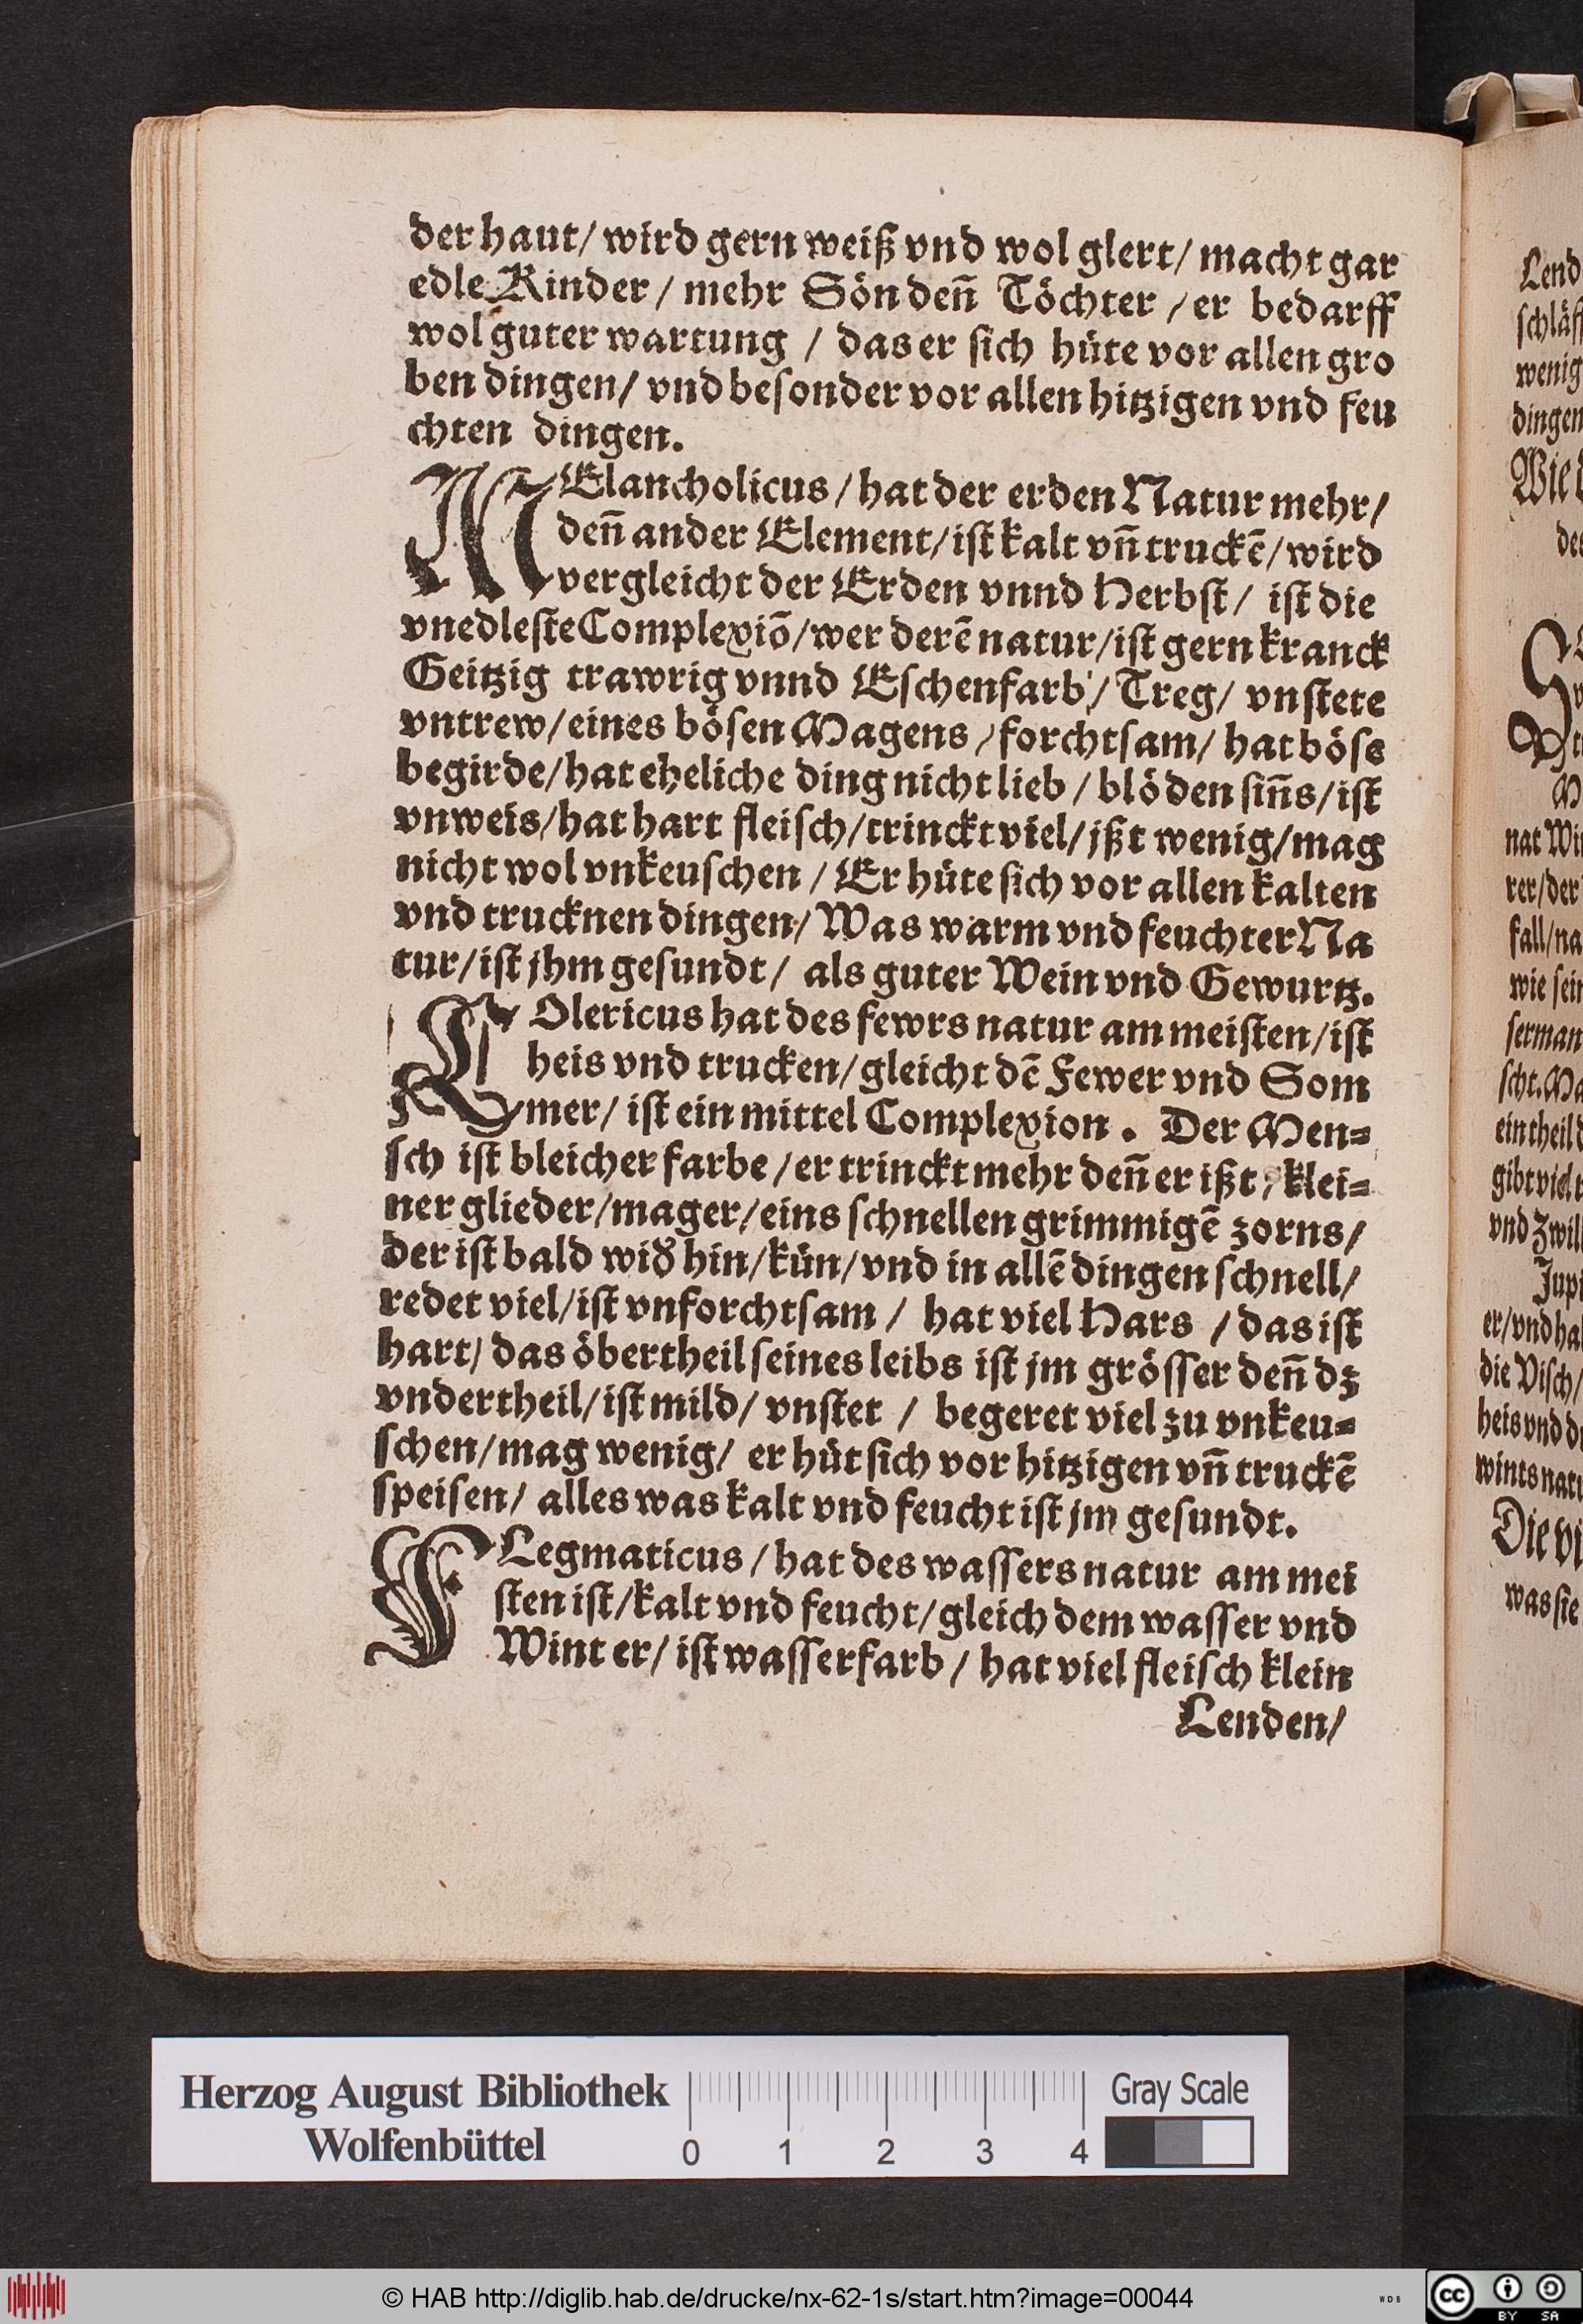 der haut/ wird gern weiß vnd wol glert/ macht gar
edle Kinder / mehr Sön deñ Töchter / er bedarff
wol guter wartung / das er ſich hüte vor allen gro
ben dingen/ vnd beſonder vor allen hitzigen vnd feu
chten dingen.
MElancholicus / hat der erden Natur mehr/
deñ ander Element/ iſt kalt vñ truckē/ wird
vergleicht der Erden vnnd Herbſt/ iſt die
vnedleſte Complexiō/ wer derē natur/ iſt gern kranck
Geitzig trawrig vnnd Eſchenfarb / Treg/ vnſtete
vntrew/ eines böſen Magens / forchtſam/ hat böſe
begirde/ hat eheliche ding nicht lieb / blöden ſiñs/ iſt
vnweis/ hat hart fleiſch/ trinckt viel/ jßt wenig/ mag
nicht wol vnkeuſchen / Er hüte ſich vor allen kalten
vnd trucknen dingen/ Was warm vnd feuchter Na
tur/ iſt jhm geſundt/ als guter Wein vnd Gewurtz.
KOlericus hat des fewrs natur am meiſten/ iſt
heis vnd trucken/ gleicht dē Fewer vnd Som
mer/ iſt ein mittel Complexion. Der Men⸗
ſch iſt bleicher farbe / er trinckt mehr deñ er ißt / klei⸗
ner glieder/ mager/ eins ſchnellen grimmigē zorns/
der iſt bald wid̓ hin/ kün/ vnd in allē dingen ſchnell/
redet viel/ iſt vnforchtſam / hat viel Hars / das iſt
hart/ das öbertheil ſeines leibs iſt jm gröſſer deñ dz
vndertheil/ iſt mild/ vnſtet / begeret viel zu vnkeu⸗
ſchen/ mag wenig/ er hüt ſich vor hitzigen vñ truckē
ſpeiſen/ alles was kalt vnd feucht iſt jm geſundt.
FLegmaticus / hat des waſſers natur am mei
ſten iſt/ kalt vnd feucht/ gleich dem waſſer vnd
Wint er/ iſt waſſerfarb / hat viel fleiſch klein
Lenden/
Lend
ſchläff
wenig
dingen
Wie
nat Wi
rer/ der
fall/ na
wie ſein
ſerman
ſcht. Ma
ein theil
gibt viel
vnd Zwil
Jupi
er/ vnd ha
die Viſch/
heis vnd d
wints natu
Die vi
was ſie
Herzog August Bibliothek
Wolfenbüttel
0 1 2 3 4
Gray Scale
© HAB http://diglib.hab.de/drucke/nx-62-1s/start.htm?image=00044
WDB
cc BY SA